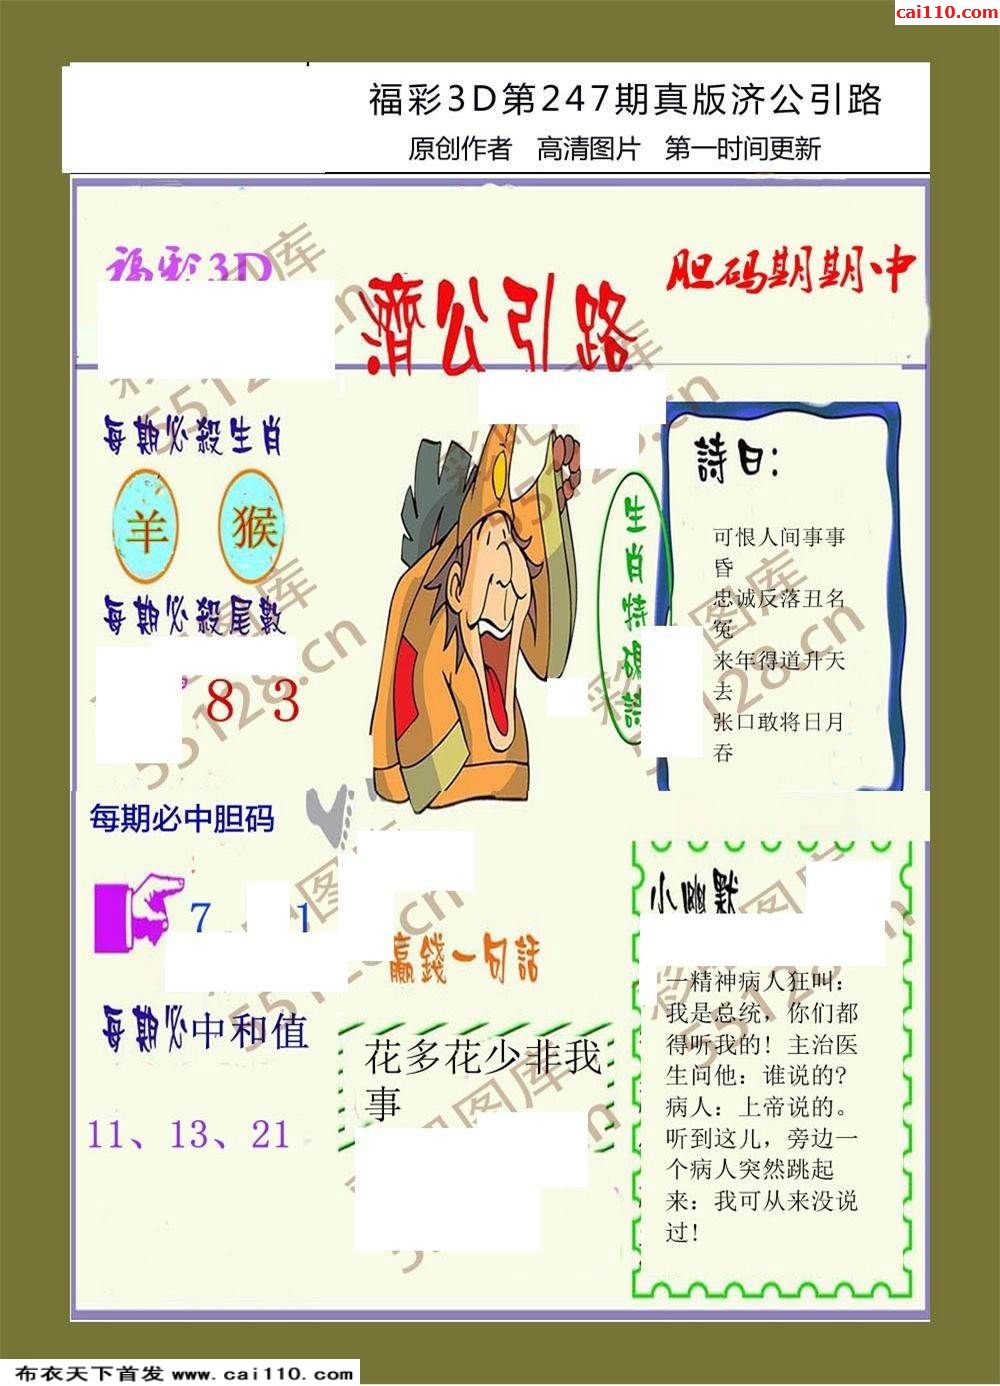 cai110.com
福彩3D第247期真版济公引路
原创作者 高清图片 第一时间更新
福彩3D
濟公引路
胆码期期中
每期必殺生肖
羊 猴
每期必殺尾數
8 3
生肖特碼詩
詩曰:
可恨人间事事
昏
忠诚反落丑名
冤
来年得道升天
去
张口敢将日月
吞
每期必中胆码
7 1
每期必中和值
11、13、21
赢錢一句話
花多花少非我
事
小幽默
一精神病人狂叫:
我是总统,你们都
得听我的!主治医
生问他:谁说的?
病人:上帝说的。
听到这儿,旁边一
个病人突然跳起
来:我可从来没说
过!
彩吧图库
55128.cn
布衣天下首发 www.cai110.com